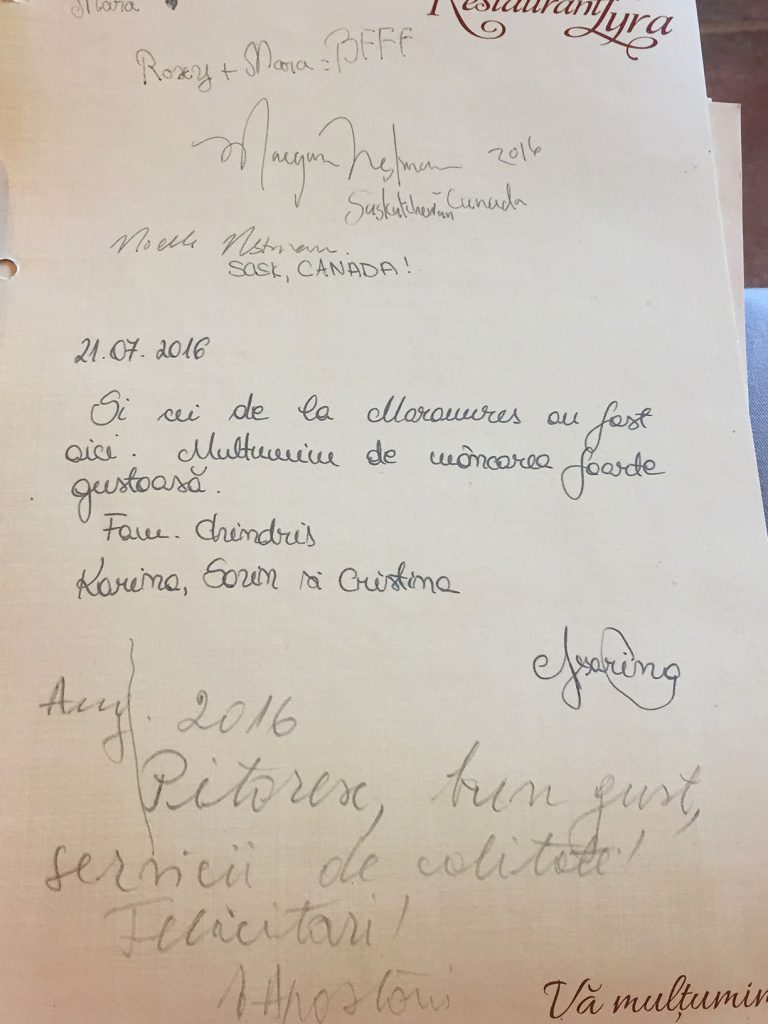 Restaurant Lyra
Mara
Roxy + Mara = BFFF
Maegan Nestman 2016
Saskatchewan Canada
Noelle Nestman
SASK, CANADA!
21.07.2016
Si cei de la Maramures au fost
aici. Multumim de mâncarea foarte
gustoasă.
Fam. Chindris
Karina, Sorin si Cristina
Aug. 2016
Pitoresc, bun gust,
servicii de calitate!
Felicitari!
Vă mulțumim